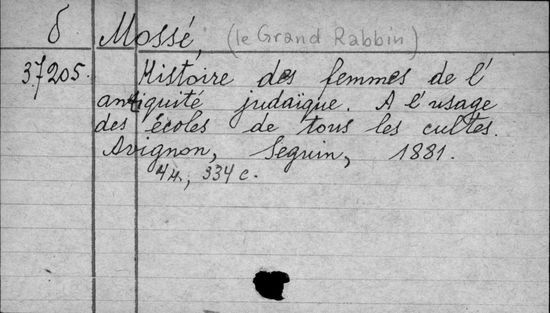 δ Mossé, (le Grand Rabbin)
37205. Histoire des femmes de l'
antiquité judaïque. A l'usage
des écoles de tous les cultes.
Avignon, Seguin, 1881.
334 c.